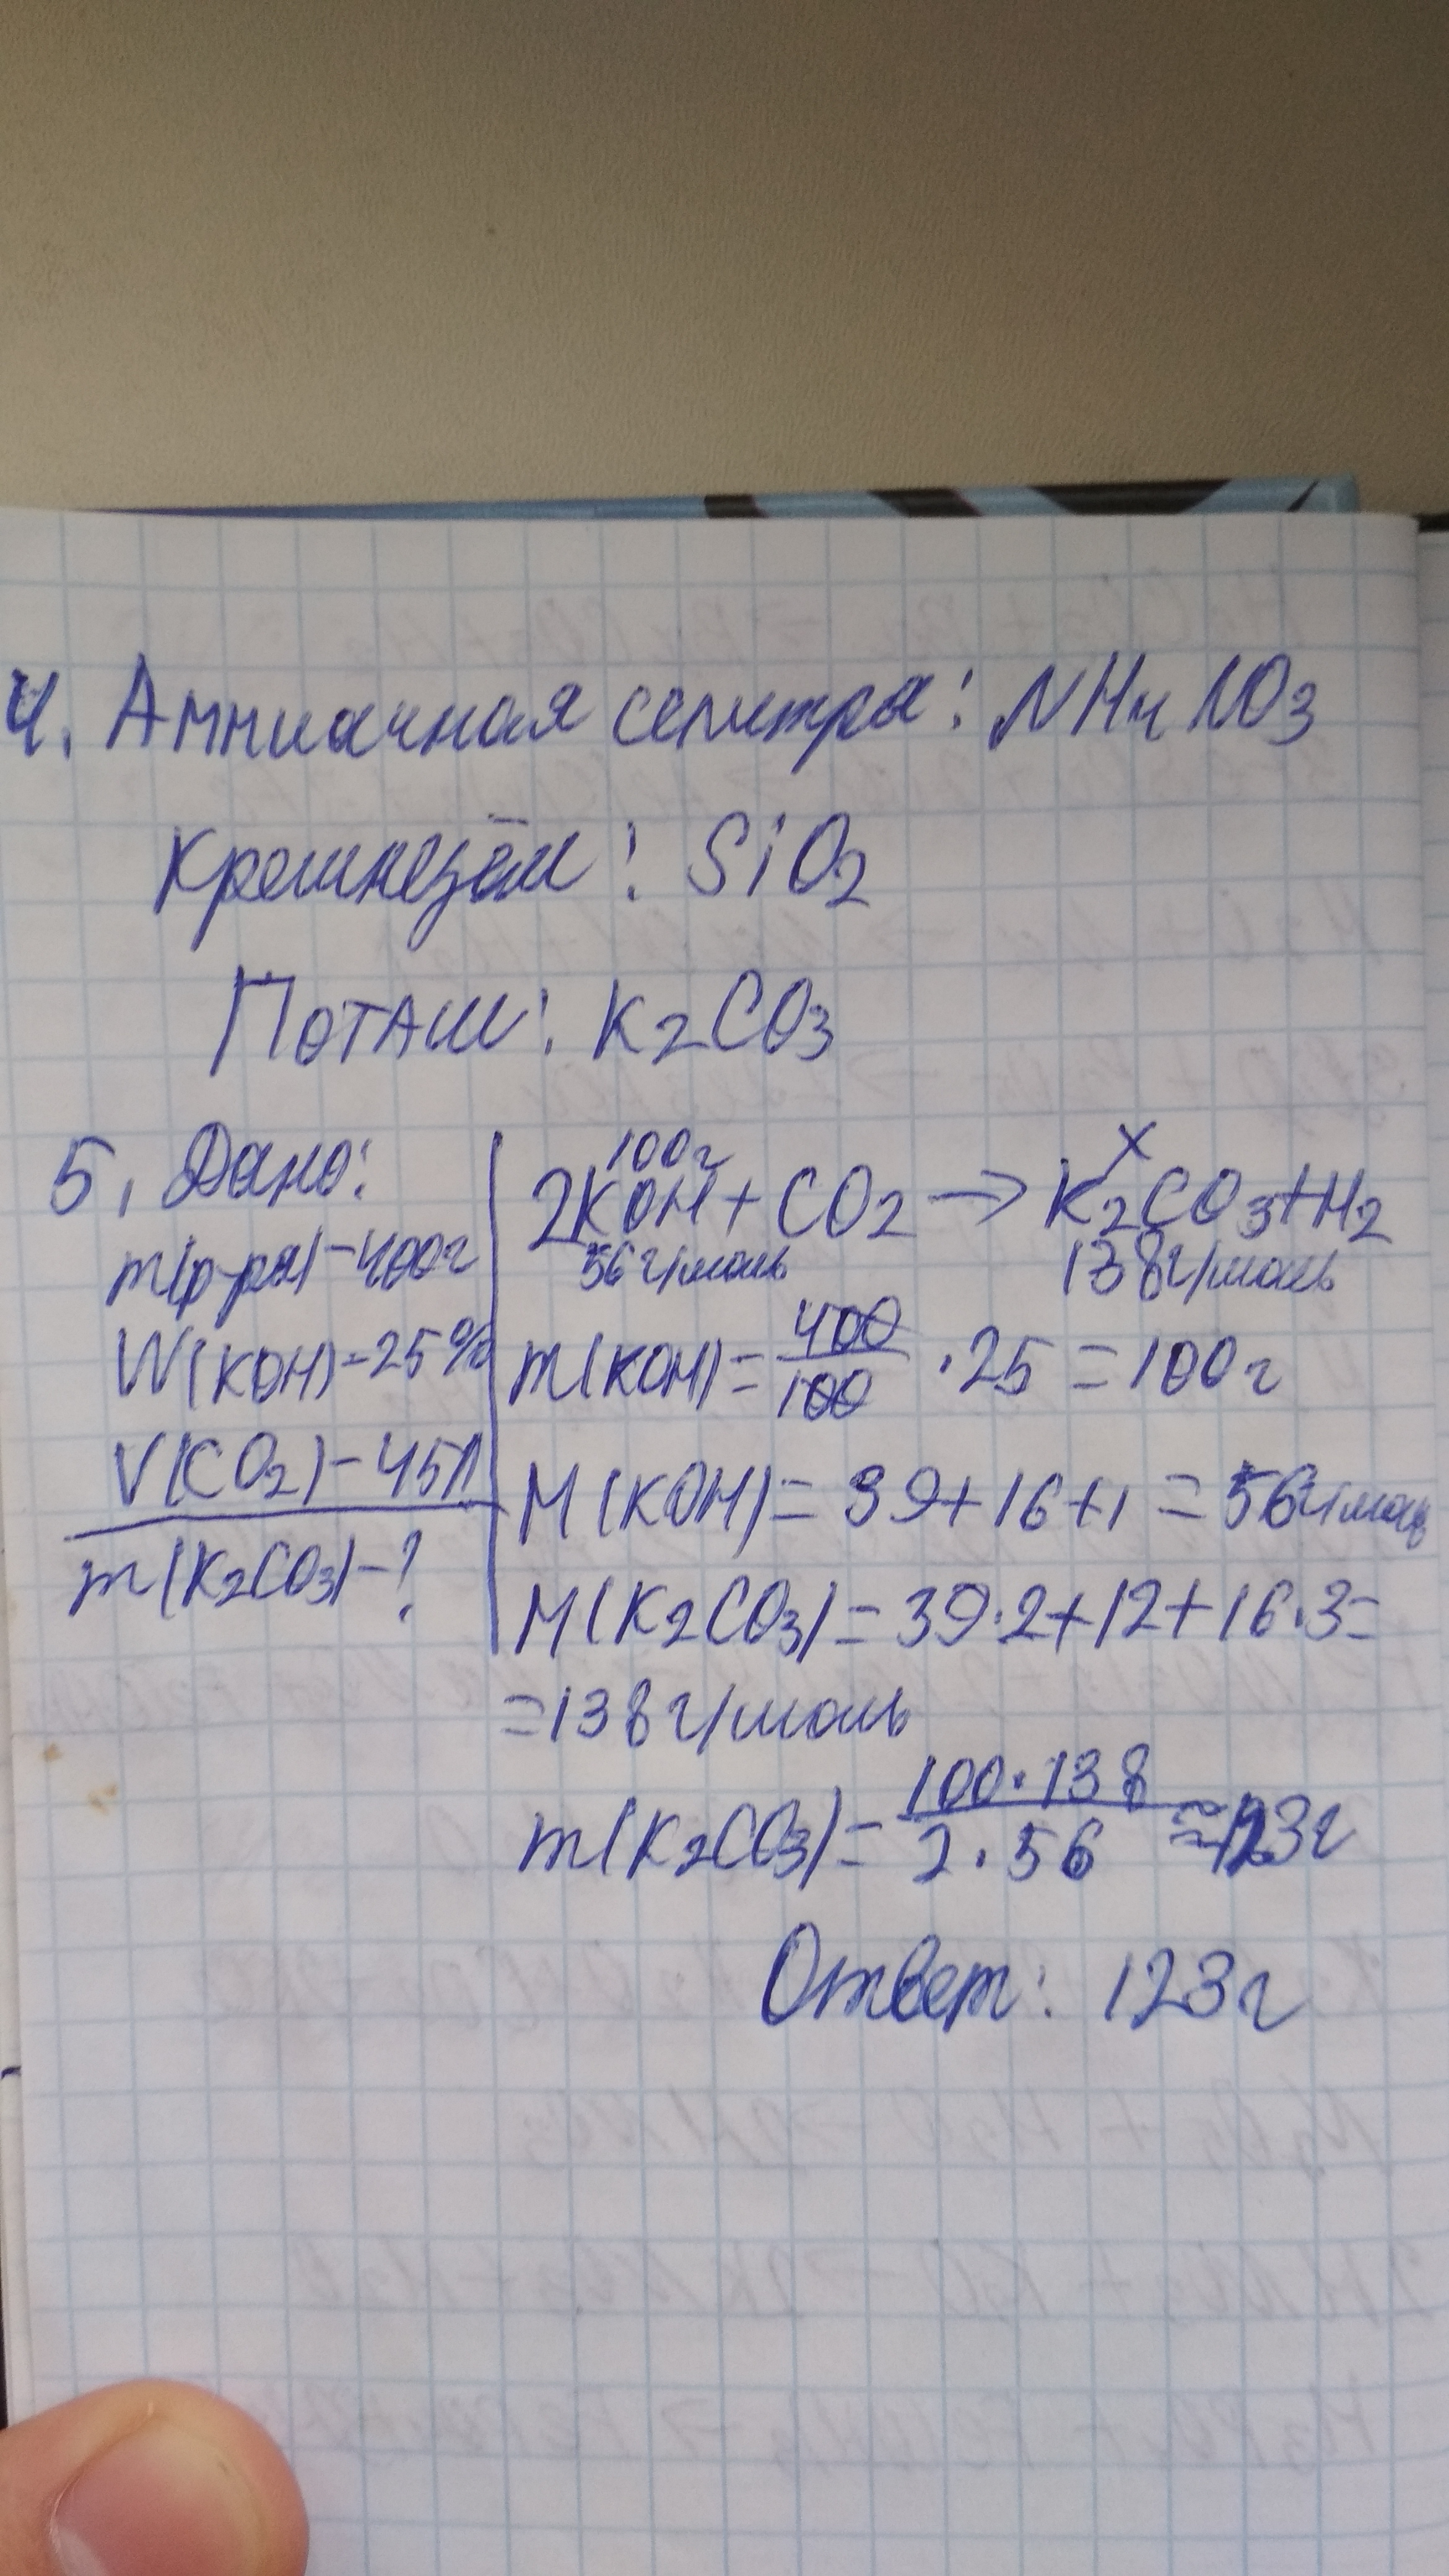 4. Аммиачная селитра: NH4NO3
Кремнезём: SiO2
Поташ: K2CO3
5. Дано:
m(р-ра)-400г
W(KOH)-25%
V(CO2)-45л
m(K2CO3)-?
100г x
2KOH+CO2→K2CO3+H2
56г/моль 138г/моль
m(KOH)=400/100·25=100г
M(KOH)=39+16+1=56г/моль
M(K2CO3)=39·2+12+16·3=
=138г/моль
m(K2CO3)=100·138/2·56≈123г
Ответ: 123г